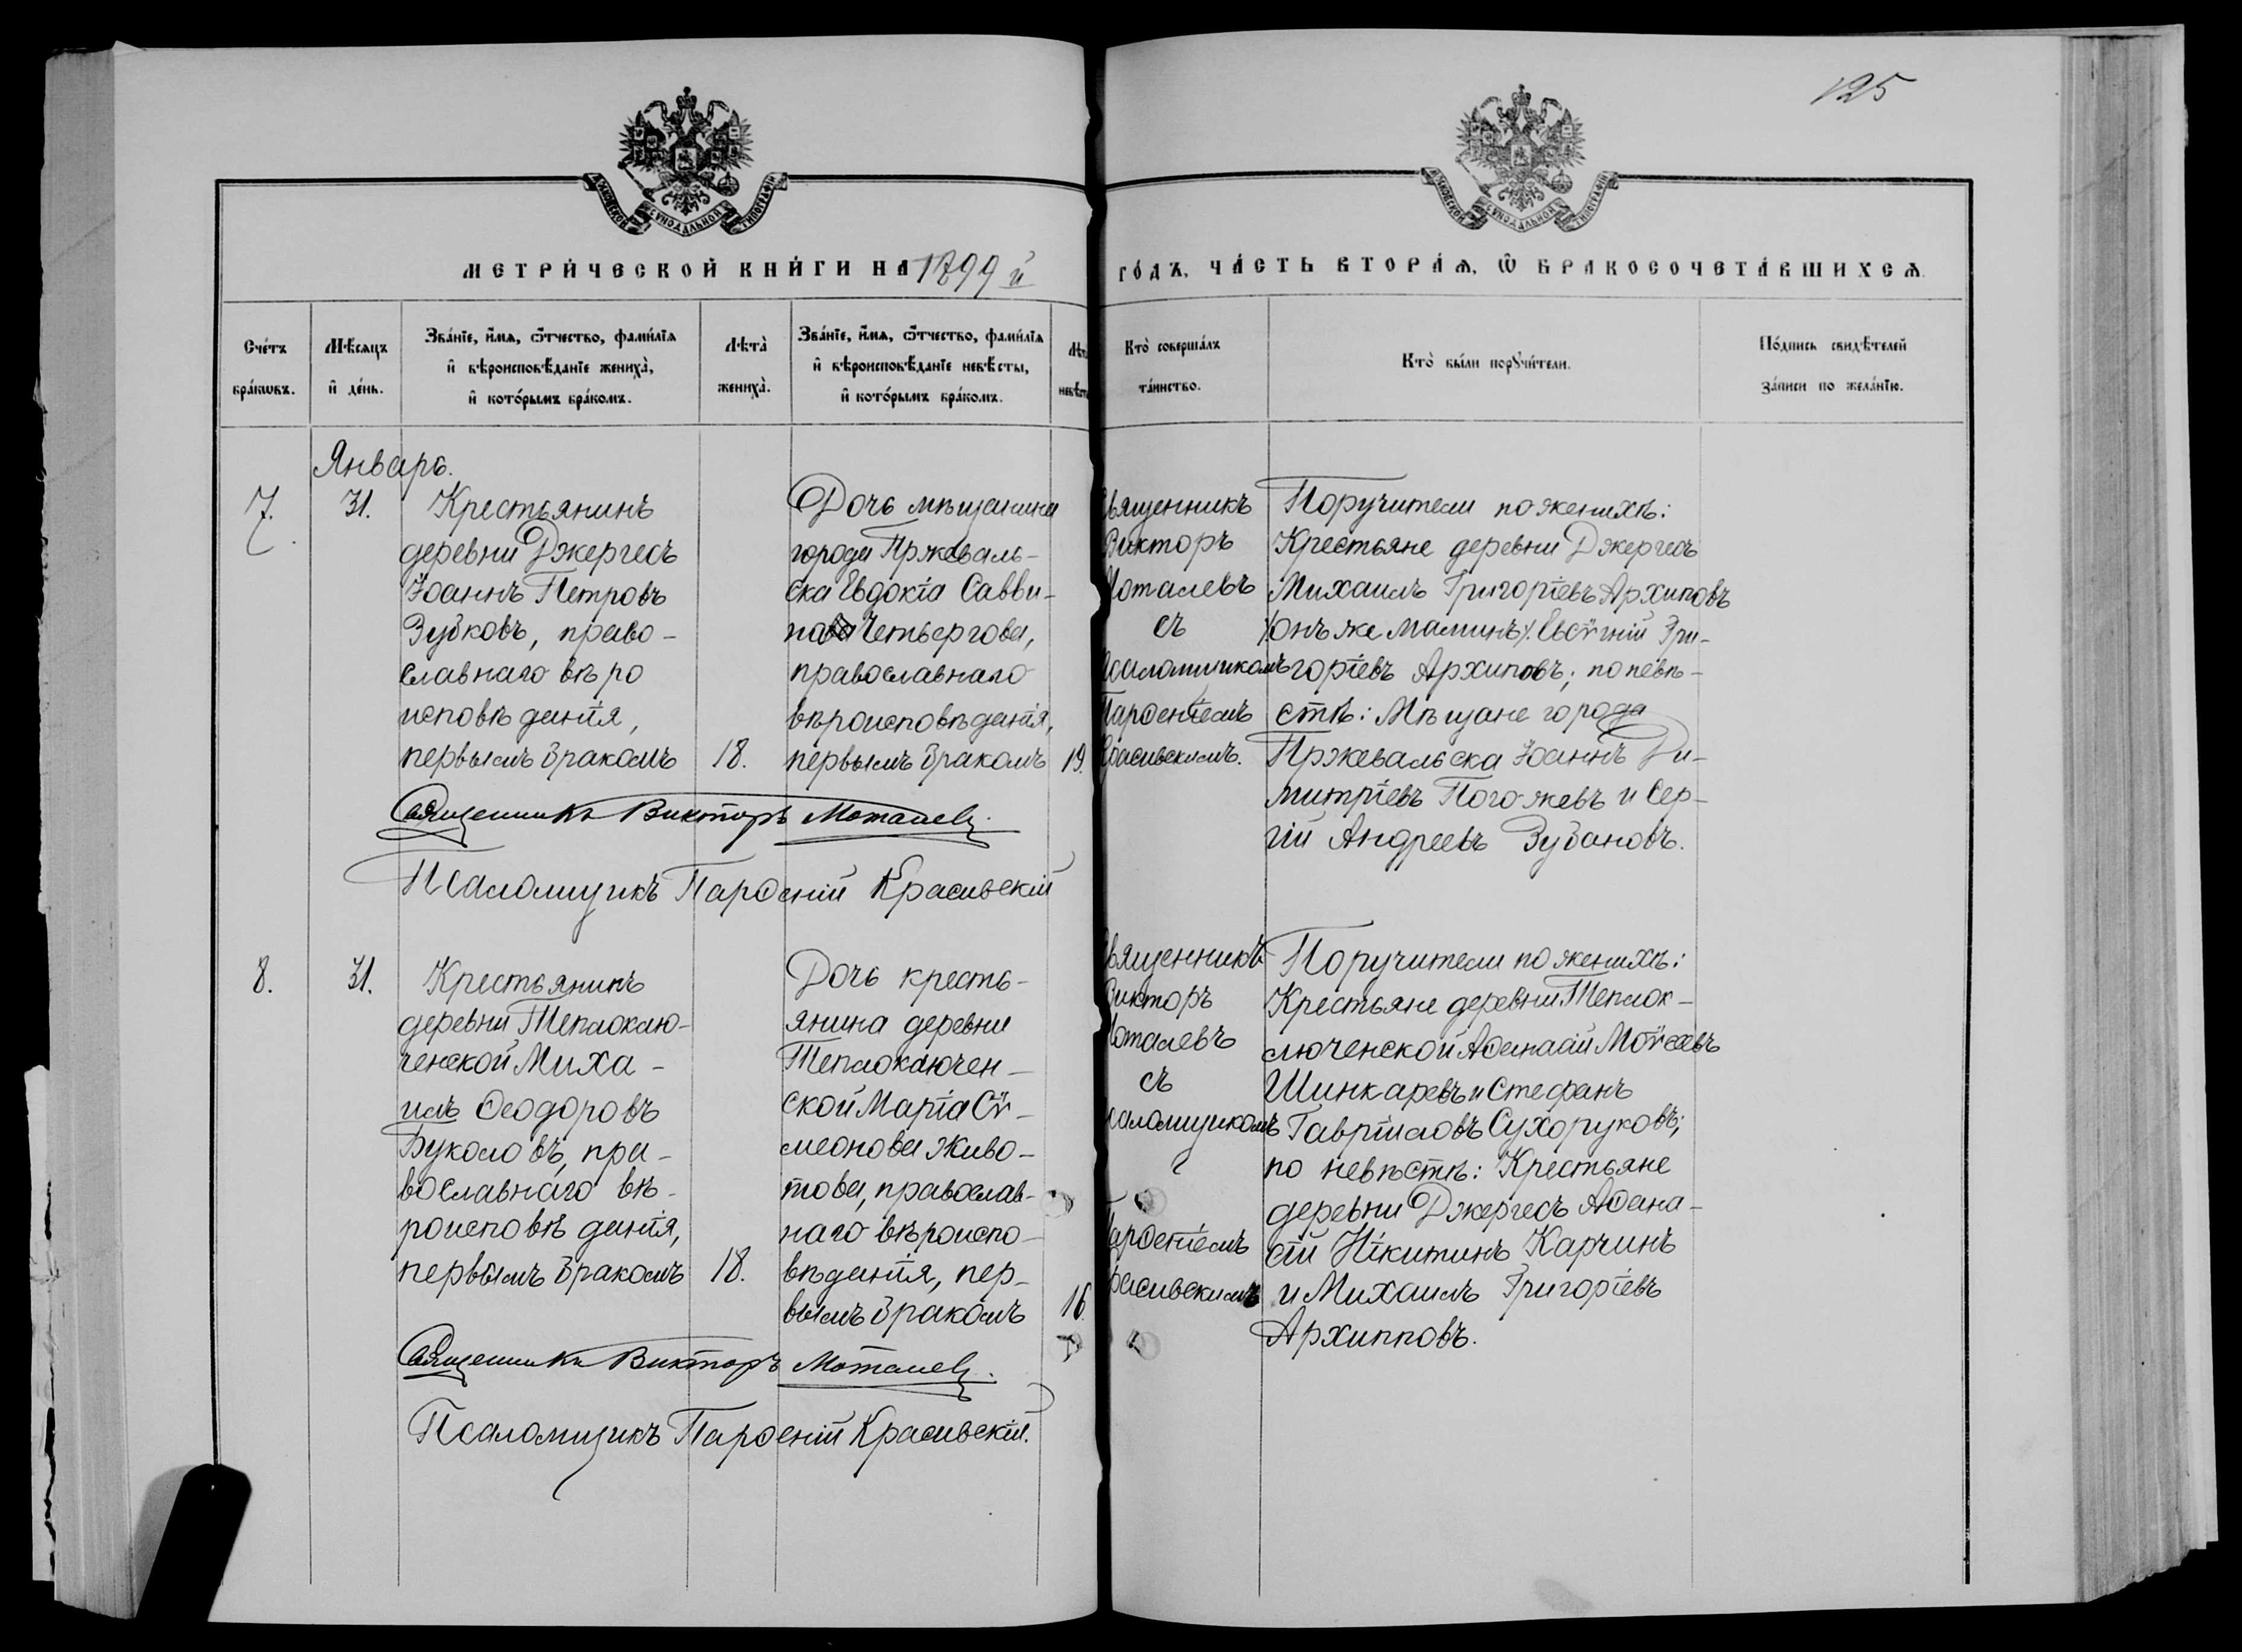 125
МОСКОВСКОЙ СѴНОДАЛЬНОЙ ТИПОГРАФІИ
МОСКОВСКОЙ СѴНОДАЛЬНОЙ ТИПОГРАФІИ
МЕТРИ́ЧЕСКОЙ КНИ́ГИ НА 1899 й
ГО́ДЪ, ЧА́СТЬ ВТОРА́Ѧ, Ѿ БРАКОСОЧЕТА́ВШИХСѦ.
Сче́тъ
бра́кωвъ.
Мѣ́сѧцъ
и҆ де́нь.
Зва́нїе, и҆́мѧ, ѻ҆́тчество, фами́лїѧ
и҆ вѣроисповѣ́данїе жениха̀,
и҆ кото́рымъ бра́комъ.
Лѣта̀
жениха̀.
Зва́нїе, и҆́мѧ, ѻ҆́тчество, фами́лїѧ
и҆ вѣроисповѣ́данїе невѣ́сты,
и҆ кото́рымъ бра́комъ.
Лѣта
невѣсты
Кто̀ соверша́лъ
та́инство.
Кто̀ бы́ли порꙋчи́тели.
По́дпись свидѣ́телей
за́писи по жела́нїю.
Январь.
7.
31.
Крестьянинъ
деревни Джергесъ
Іоаннъ Петровъ
Зубковъ, право-
славнаго вѣро
исповѣданія,
первымъ бракомъ
18.
Дочь мѣщанина
города Пржеваль-
ска Евдокія Савви-
на Четвергова,
православнаго
вѣроисповѣданія,
первымъ бракомъ
19.
Священникъ
Викторъ
Моталевъ
съ
Псаломщикомъ
Парѳеніемъ
Красивскимъ.
Поручители по женихѣ:
Крестьяне деревни Джергесъ
Михаилъ Григоріевъ Архиповъ
/онъ же Маминъ/. Евсѵгній Гри-
горіевъ Архиповъ; по невѣ-
стѣ: Мѣщане города
Пржевальска Іоаннъ Ди-
митріевъ Погожевъ и Сер-
гій Андреевъ Зубановъ.
Священникъ Викторъ Моталевъ.
Псаломщикъ Парѳеній Красивскій
8.
31.
Крестьянинъ
деревни Теплоклю-
ченской Миха-
илъ Ѳеодоровъ
Буколовъ, пра-
вославнаго вѣ-
роисповѣданія,
первымъ бракомъ
18.
Дочь кресть-
янина деревни
Теплоключен-
ской Марія Сѵ-
меонова Живо-
това, православ-
наго вѣроиспо-
вѣданія, пер-
вымъ бракомъ
16.
Священникъ
Викторъ
Моталевъ
съ
псаломщикомъ
Парѳеніемъ
Красивскимъ
Поручители по женихѣ:
Крестьяне деревни Теплок-
люченской Аѳанасій Моѵсеевъ
Шинкаревъ и Стефанъ
Гавріиловъ Сухоруковъ;
по невѣстѣ: Крестьяне
деревни Джергесъ Аѳана-
сій Нікитинъ Карчинъ
и Михаилъ Григоріевъ
Архипповъ.
Священникъ Викторъ Моталевъ.
Псаломщикъ Парѳеній Красивскій.